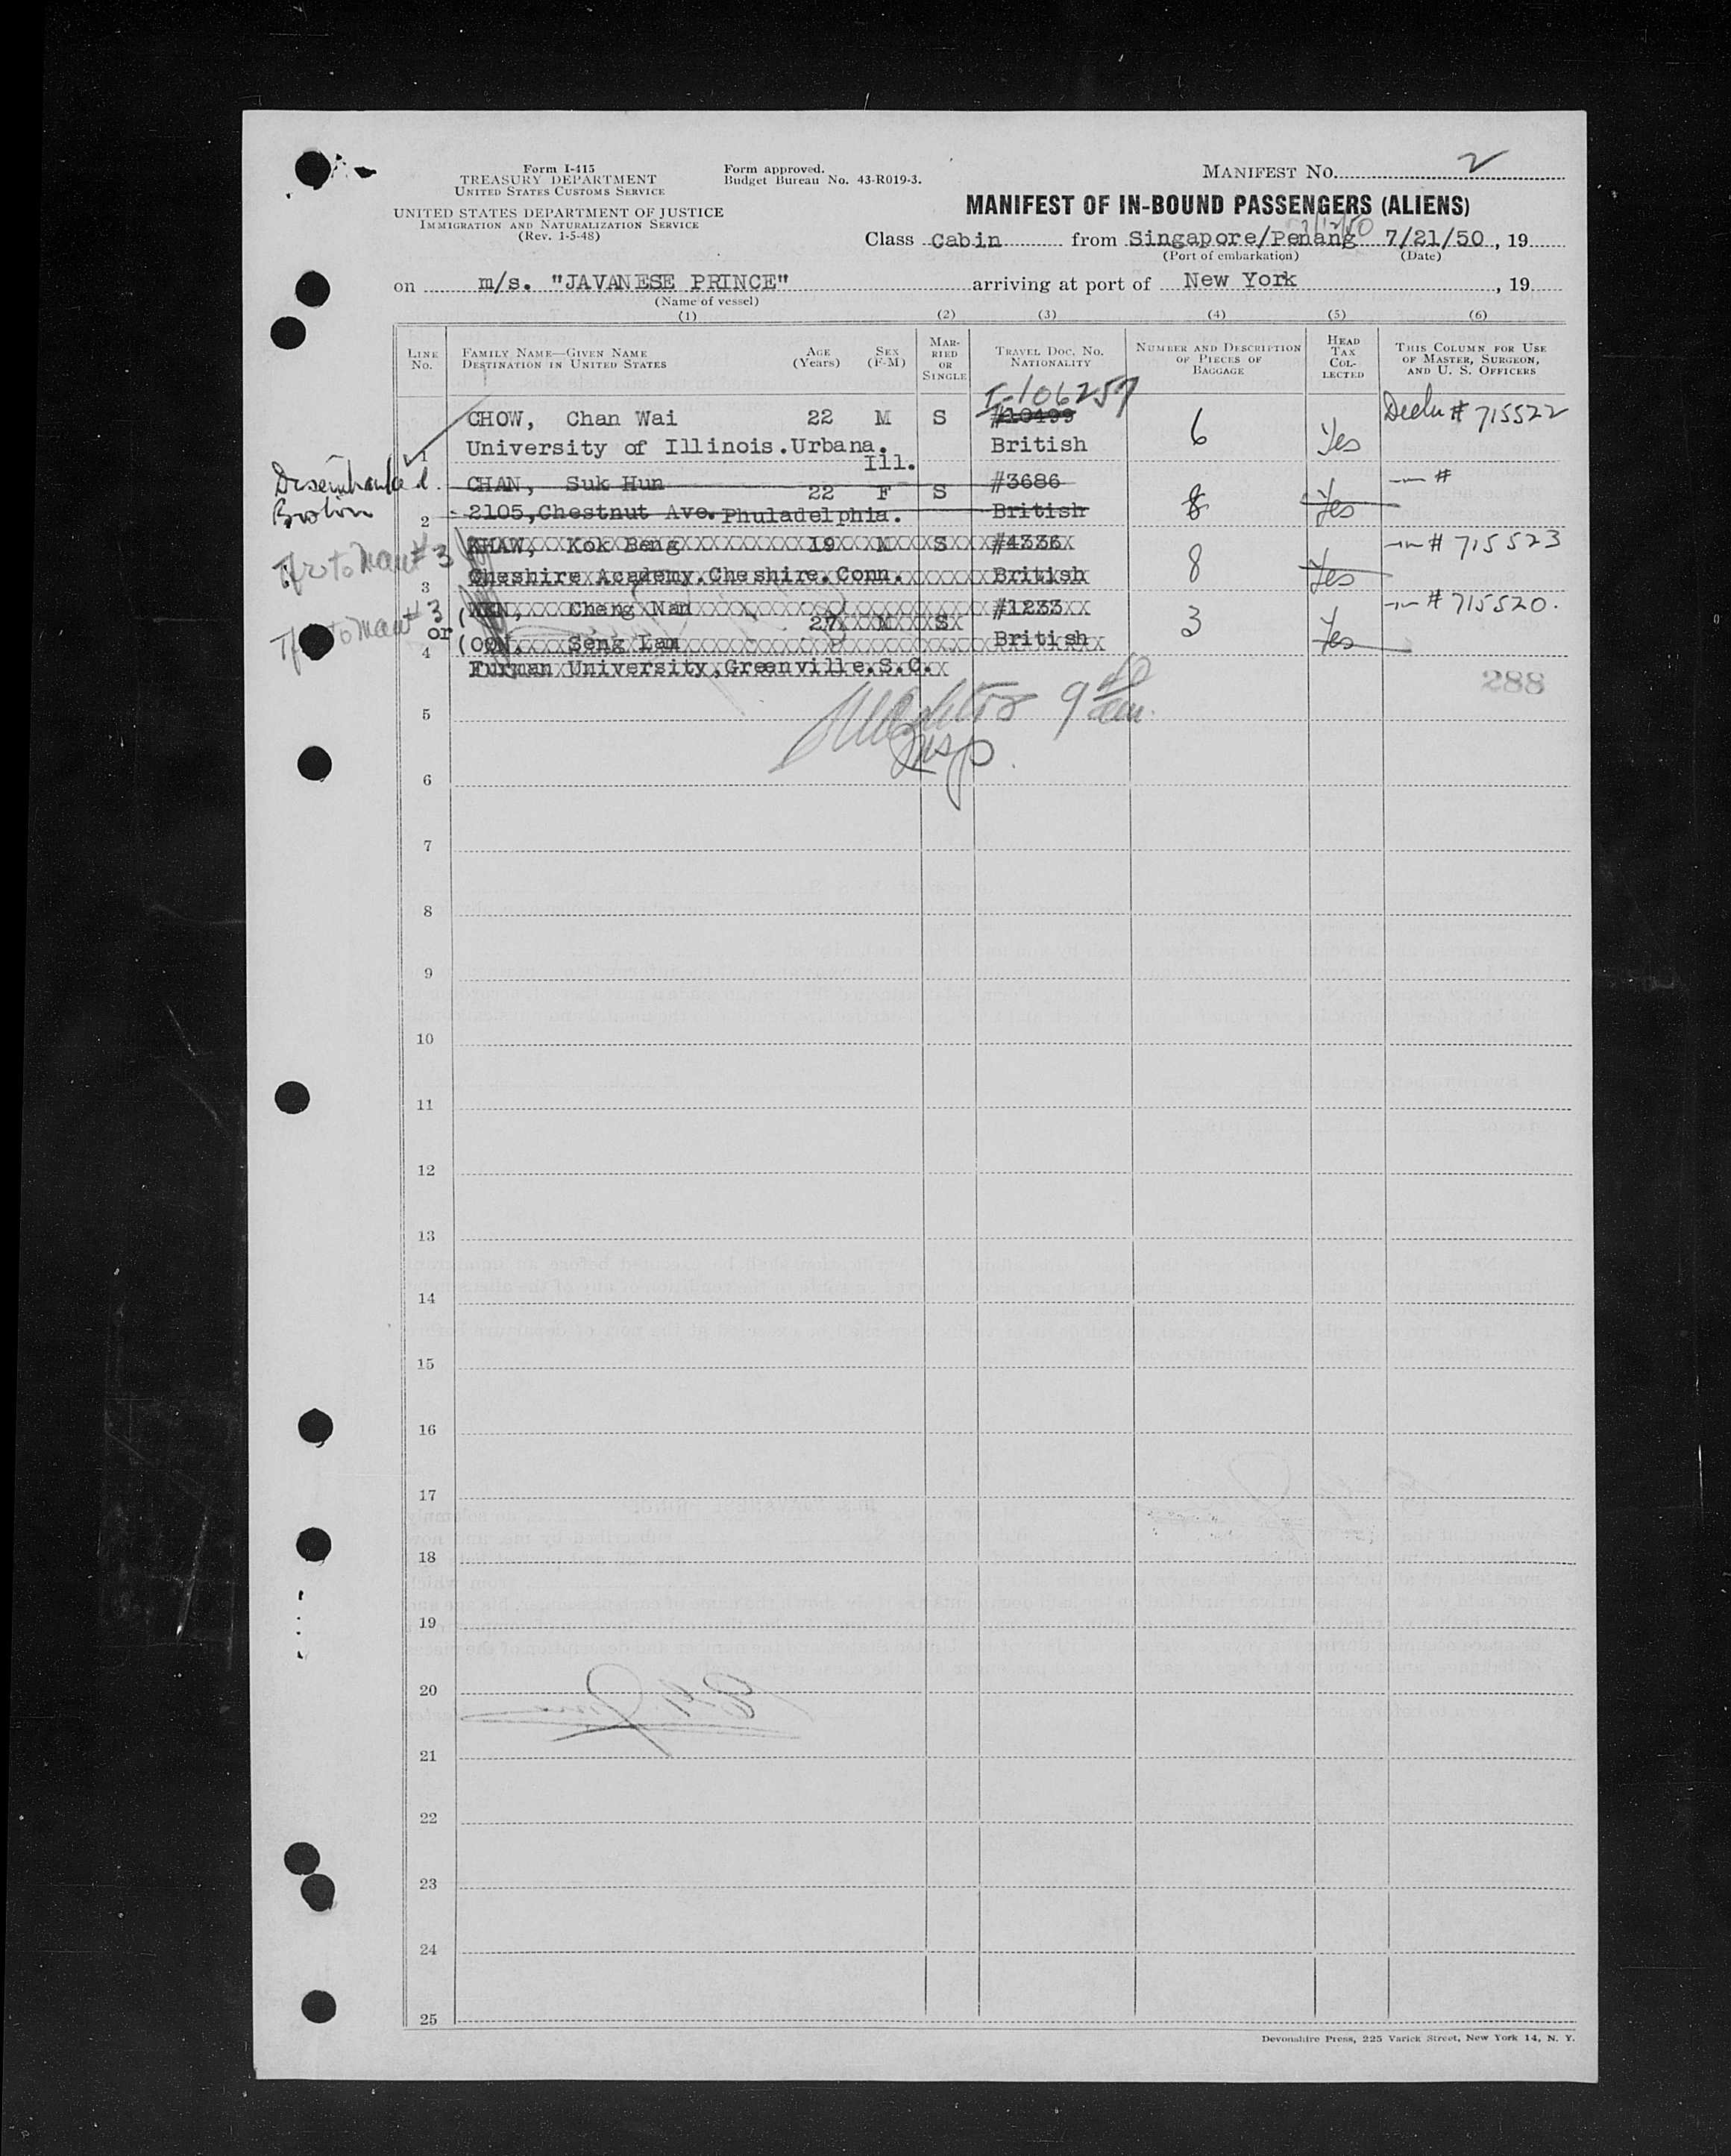 Form I-415
TREASURY DEPARTMENT
UNITED STATES CUSTOMS SERVICE
UNITED STATES DEPARTMENT OF JUSTICE
IMMIGRATION AND NATURALIZATION SERVICE
(Rev. 1-5-48)
Form approved.
Budget Bureau No. 43-R019-3.
MANIFEST NO. 2
MANIFEST OF IN-BOUND PASSENGERS (ALIENS)
Class Cabin from Singapore/Penang 7/21/50, 19
(Port of embarkation) (Date)
on m/s. "JAVANESE PRINCE" arriving at port of New York, 19
(Name of vessel)
(1) (2) (3) (4) (5) (6)
LINE No. FAMILY NAME—GIVEN NAME DESTINATION IN UNITED STATES AGE (Years) SEX (F-M) MARRIED OR SINGLE TRAVEL DOC. NO. NATIONALITY NUMBER AND DESCRIPTION OF PIECES OF BAGGAGE HEAD TAX COLLECTED THIS COLUMN FOR USE OF MASTER, SURGEON, AND U. S. OFFICERS
I-106257
CHOW, Chan Wai 22 M S #10499 6 Yes Decln # 715522
1 University of Illinois.Urbana. Ill. British
Disembarked
CHAN, Suk Hun 22 F S #3686 8 Yes -"- #
2 2105,Chestnut Ave.Phuladelphia. British
Tfr to Man # 3
KHAW, Kok Beng 19 M S #4336 8 Yes -"- # 715523
3 Cheshire Academy.Cheshire.Conn. British
Tfr to Man # 3
Cheng Nan 27 M S #1233 3 Yes -"- # 715520.
or
4 (OON. Seng Lam British
Furman University,Greenville.S.C.
288
9 40 am.
Insp.
5
6
7
8
9
10
11
12
13
14
15
16
17
18
19
20
21
22
23
24
25
Devonshire Press, 225 Varick Street, New York 14, N. Y.